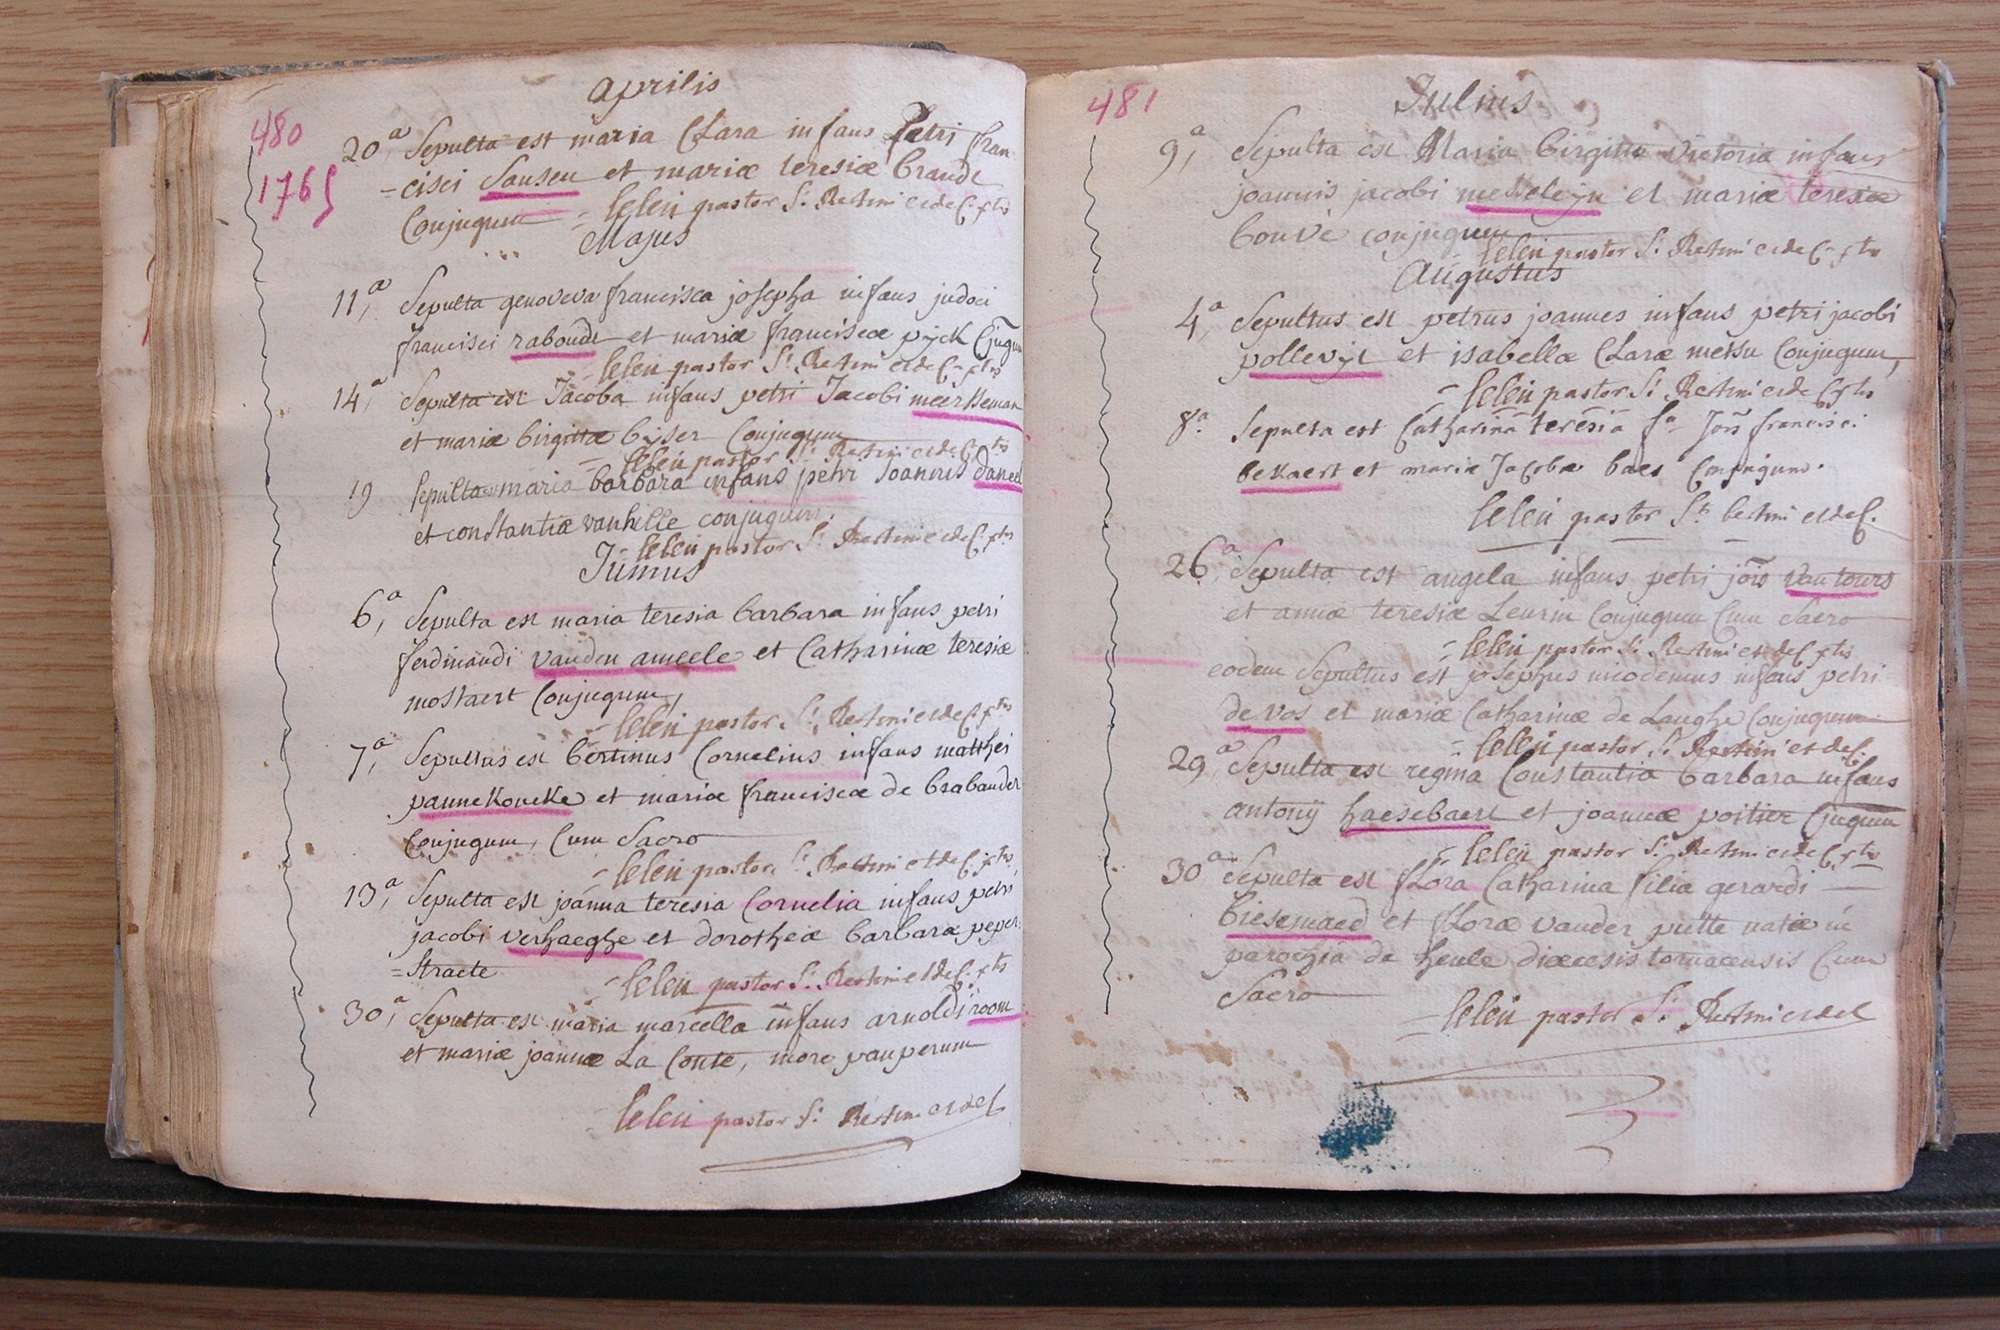 480
1765
aprilis
20a Sepulta est maria Clara infans Petri fran-
=cisci Sansen et mariæ teresiæ brande
Conjugum = lelen pastor St. Bertini et decs. Xtis
Majus
11,a Sepulta genoveva francisca josepha infans judoci
francisci raboudt et mariæ franciscæ pijck Cjugum
= lelen pastor St. Bertini et dec. Xtis
14,a Sepulta est Jacoba infans petri Jacobi meersseman
et mariæ birgittæ bijser Conjugum
= lelen pastor St. Bertini et dec. Xtis
19 sepulta maria barbara infans petri Joannis daneel
et constantiæ vanhelle conjugum.
= lelen pastor St. Bertini et dec. Xtis
Junius
6,a Sepulta est maria teresia barbara infans petri
ferdinandi vanden ameele et Catharinæ teresiæ
mostaert Conjugum,
= lelen pastor St. Bertini et dec. Xtis
7,a Sepultus est bertinus Cornelius infans matthei
pannekoucke et mariæ franciscæ de brabander
Conjugum, Cum Sacro
= lelen pastor St. Bertini et dec. Xtis
13,a Sepulta est joanna teresia Cornelia infans petri
jacobi verhaeghe et dorotheæ barbaræ peper-
=straete
= lelen pastor St. Bertini et dec. Xtis
30,a Sepulta est maria marcella infans arnoldi room
et mariæ joannæ La Conte, more pauperum
lelen pastor St. Bertini et dec
481
Julius
9,a Sepulta est Maria birgitta victoria infans
joannis jacobi messelijn et mariæ teresiæ
bouvé conjugum
= lelen pastor St. Bertini et dec. Xtis
Augustus
4,a Sepultus est petrus joannes infans petri jacobi
pollevijt et isabellæ Claræ metsu Conjugum,
= lelen pastor St. Bertini et de Cxtis
8a. Sepulta est Catharina teresia fa. Jois francisci
bekaert et mariæ Jacobæ baes Conjugum.
lelen pastor St. bertini et dec.
26,a Sepulta est angela infans petri jois van tours
et annæ teresiæ Leurin Conjugum Cum Sacro
= lelen pastor St. Bertini et dec. Xtis
eodem Sepultus est josephus nicodemus infans petri
de vos et mariæ Catharinæ de Langhe Conjugum
= lelen pastor St. Bertini et dec.
29,a Sepulta est regina Constantia barbara infans
antonij haesebaert et joannæ poitier Cjugum
= lelen pastor St. Bertini et dec. Xtis
30a Sepulta est flora Catharina filia gerardi
biesemaed et floræ vander putte natæ in
parochia de heule diæcesis tornacensis Cum
Sacro
= lelen pastor St. Bertini et dec